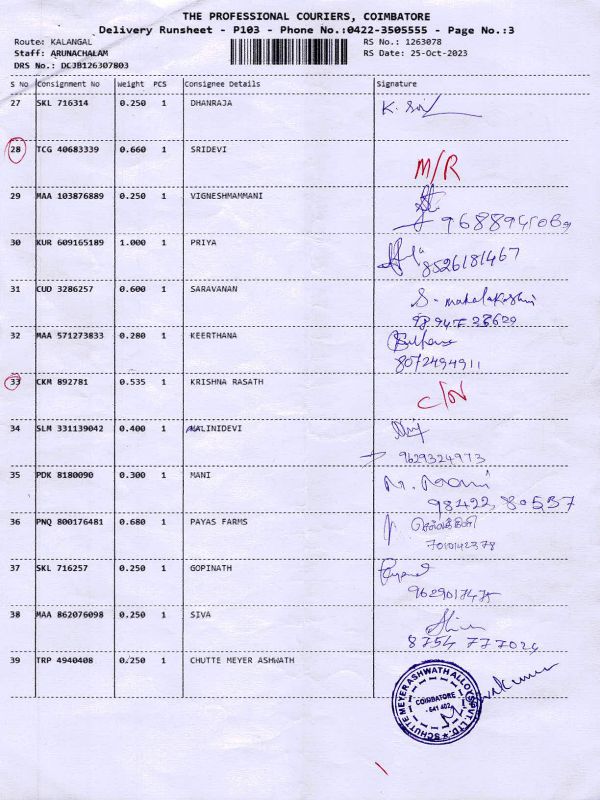 THE PROFESSIONAL COURIERS, COIMBATORE
Delivery Runsheet - P103 - Phone No.:0422-3505555 - Page No.:3
Route: KALANGAL RS No.: 1263078
Staff: ARUNACHALAM RS Date: 25-Oct-2023
DRS No.: DCJB126307803
S No Consignment No Weight PCS Consignee Details Signature
27 SKL 716314 0.250 1 DHANRAJA
28 TCG 40683339 0.660 1 SRIDEVI
M/R
29 MAA 103876889 0.250 1 VIGNESHMAMMANI
30 KUR 609165189 1.000 1 PRIYA
8526181467
31 CUD 3286257 0.600 1 SARAVANAN
S. Mahalakshmi
32 MAA 571273833 0.280 1 KEERTHANA
8072494911
33 CKM 892781 0.535 1 KRISHNA RASATH
34 SLM 331139042 0.400 1 MALINIDEVI
9629324973
35 PDK 8180090 0.300 1 MANI
M. Mani
98423 80537
36 PNQ 800176481 0.680 1 PAYAS FARMS
7010142378
37 SKL 716257 0.250 1 GOPINATH
9629017475
38 MAA 862076098 0.250 1 SIVA
8754 777024
39 TRP 4940408 0.250 1 CHUTTE MEYER ASHWATH
SCHUTTE MEYER ASHWATH ALLOYS PVT. LTD.
COIMBATORE
- 641 402